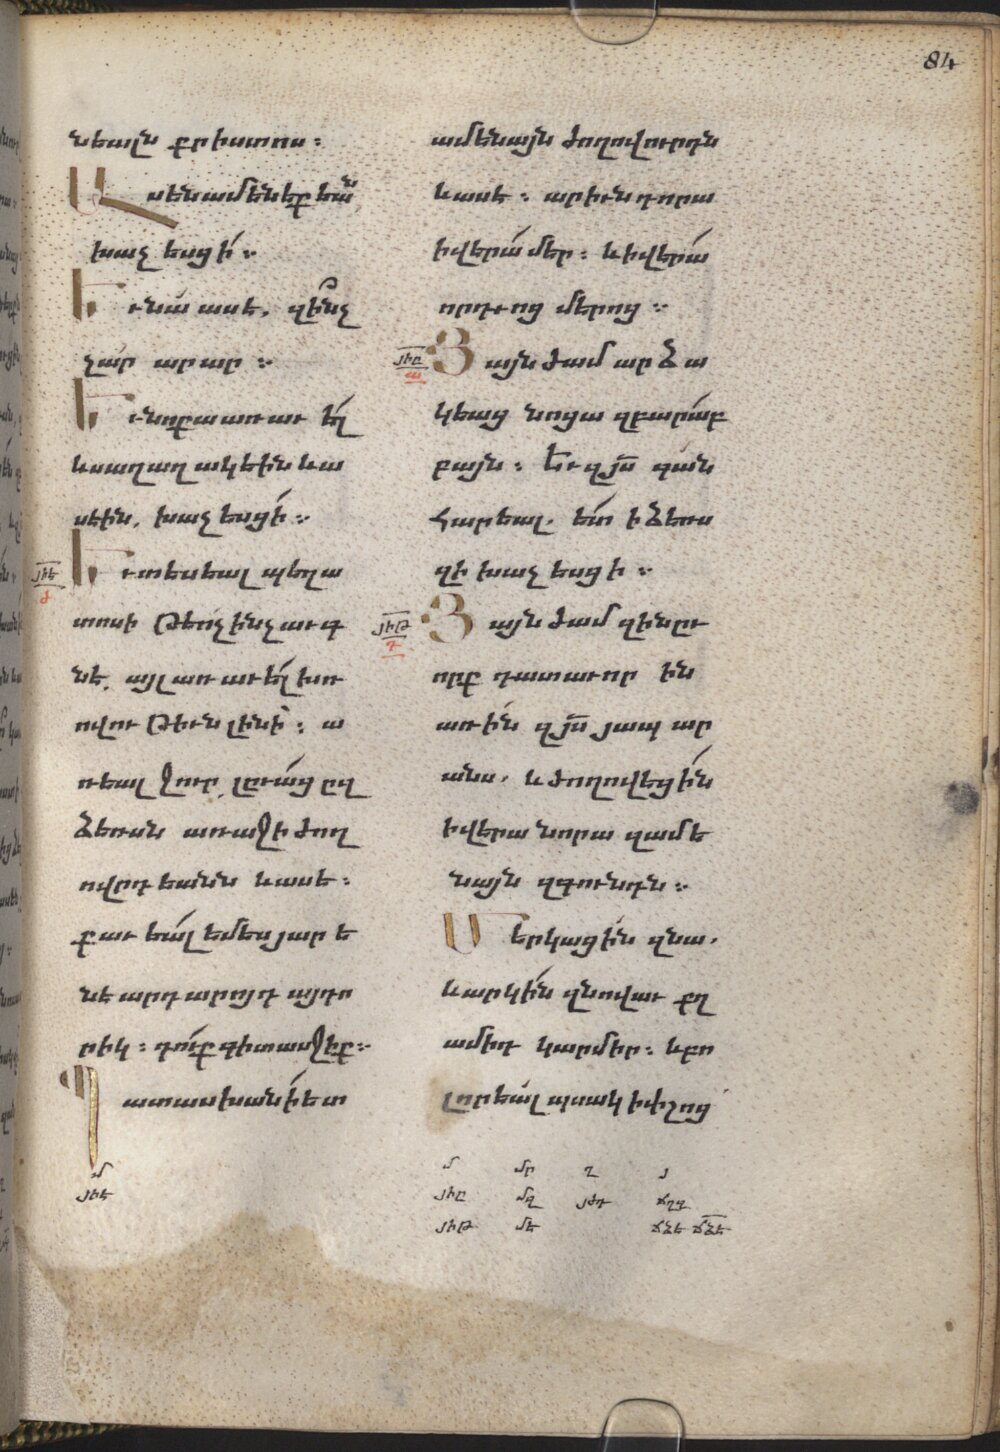 84
նեալն քրիստոս։
Ասեն ամենեքեան
խաչ եսցի։
Եւ նա ասե, զինչ
չար արար։
Եւ նոքա առաւել
ևս աղաղակեին և ա
սեին, խաչ եսցի։
յիե
Եւ տեսեալ պեղա
տոսի թե ոչ ինչ աւգ
նե, այլ առաւել խռ
ովութիւն լինի։ ա
ռեալ ջուր, լըւաց ըզ
ձեռսն առաջի ժող
ովրդեանն և ասե։
քաւեալ եմ ես յարե
նե արդարոյդ այդո
րիկ։ դուք գիտասջիք։
Պատասխանի ետ
մ
յիե
ամենայն ժողովուրդն
և ասե։ արիւն դորա
ի վերա մեր։ և ի վերա
որդւոց մերոց։
յիը
ա
Յայնժամ արձա
կեաց նոցա զբարաբ
բայն։ Եւ զյս գան
հարեալ. ետ ի ձեռս
զի խաչ եսցի։
յիթ
դ
Յայնժամ զինըւ
որք դատաւորին
առին զյս յապար
անս. և ժողովեցին
ի վերա նորա զամե
նայն զգունդն։
Մերկացին զնա.
և արկին զնովաւ քղ
ամիդ կարմիր։ և բո
լորեալ պսակ ի փշոց
մ մր ղ յ
յիը մզ յժդ ճղգ
յիթ մե ճձե ճձե